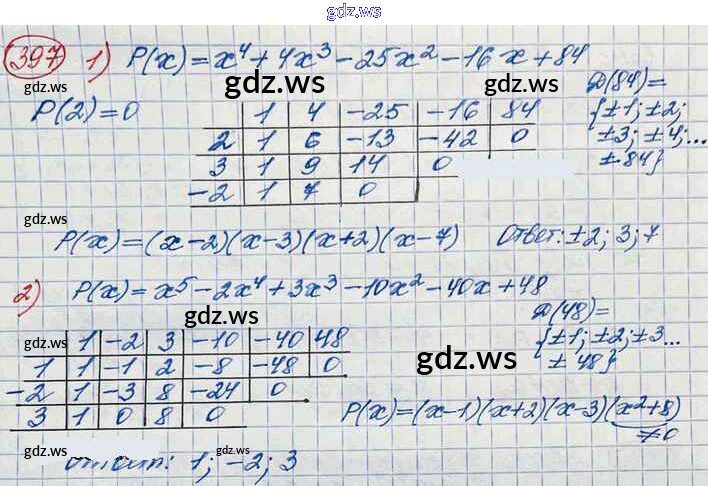 gdz.ws
397 1) P(x) = x⁴ + 4x³ - 25x² - 16x + 84
gdz.ws gdz.ws gdz.ws
P(2) = 0
D(84) =
{±1; ±2;
±3; ±4; ...
± 84}
1 4 -25 -16 84
2 1 6 -13 -42 0
3 1 9 14 0
-2 1 7 0
P(x) = (x-2)(x-3)(x+2)(x-7) Ответ: ±2; 3; 7
gdz.ws
2) P(x) = x⁵ - 2x⁴ + 3x³ - 10x² - 40x + 48
gdz.ws
D(48) =
{±1; ±2; ±3...
± 48}
1 -2 3 -10 -40 48
1 1 -1 2 -8 -48 0
-2 1 -3 8 -24 0
3 1 0 8 0
gdz.ws gdz.ws
P(x) = (x-1)(x+2)(x-3)(x²+8)
≠0
gdz.ws gdz.ws
Ответ: 1; -2; 3
gdz.ws